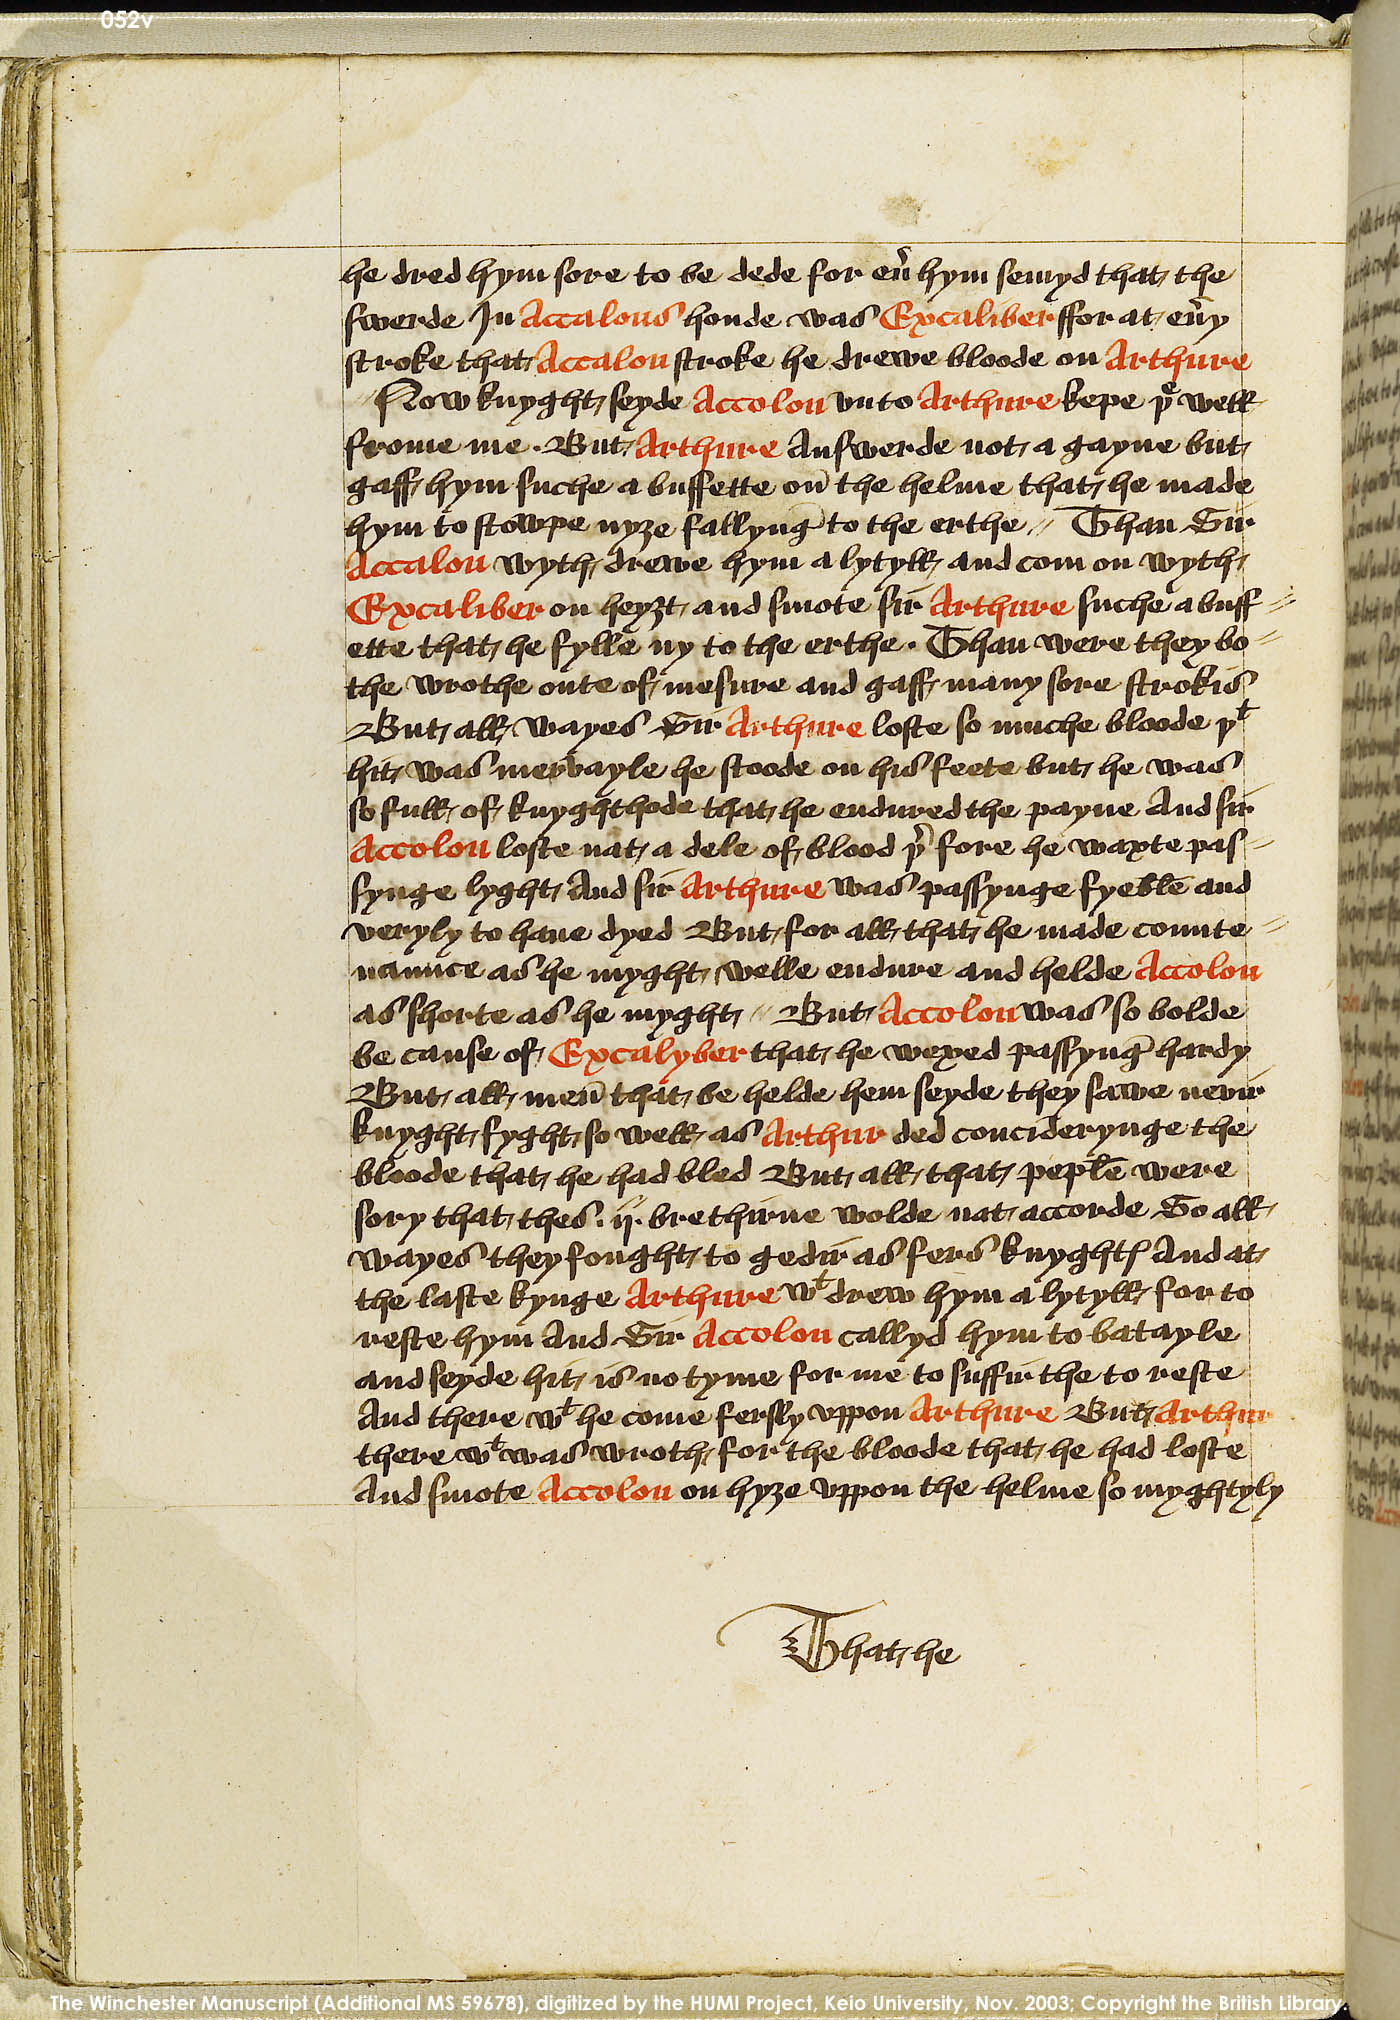 052v
he dred hym sore to be dede for eũ hym semyd that the
swerde In Accalons honde was Excaliber ffor at eũy
stroke that Accalon stroke he drewe bloode on Arthure
// Now knyght seyde Accolon vnto Arthure kepe þͤ well
frome me . But Arthure Answerde not a gayne but
gaff hym suche a buffette oñ the helme that he made
hym to stowpe nyȝe fallyng̃ to the erthe // Than Sir
Accalon wyth drewe hym a lytyll and com on wyth
Excaliber on heyȝt and smote sir Arthure suche a buff //
ette that he fylle ny to the erthe . Than were they bo //
the wrothe oute of mesure and gaff many sore strokis
But all wayes Sir Arthure loste so muche bloode þᵗ
hit was mervayle he stoode on his feete but he was
so full of knyghthode that he endured the payne And sir
Accolon loste nat a dele of blood þ̃ fore he waxte pas //
synge lyght And sir Arthure was passynge fyeble and
veryly to haue dyed But for all that he made counte //
naunce as he myght welle endure and helde Accolon
as shorte as he myght // But Accolon was so bolde
be cause of Excalyber that he wexed passyng̃ hardy
But all meñ that be helde hem seyde they sawe nevir
knyght fyght so well as Arthur ded conciderynge the
bloode that he had bled But all that peple were
sory that thes . ij . brethirne wolde nat accorde So all
wayes they fought to gedir as fers knyghtꝭ And at
the laste kynge Arthure wᵗ drew hym a lytyll for to
reste hym And Sir Accolon callyd hym to batayle
and seyde hit is no tyme for me to suffir the to reste
And there wᵗ he come fersly vppon Arthure But Arthur
there wᵗ was wroth for the bloode that he had loste
And smote Accolon on hyȝe vppon the helme so myghtyly
That he
The Winchester Manuscript (Additional MS 59678), digitized by the HUMI Project, Keio University, Nov. 2003; Copyright the British Library.